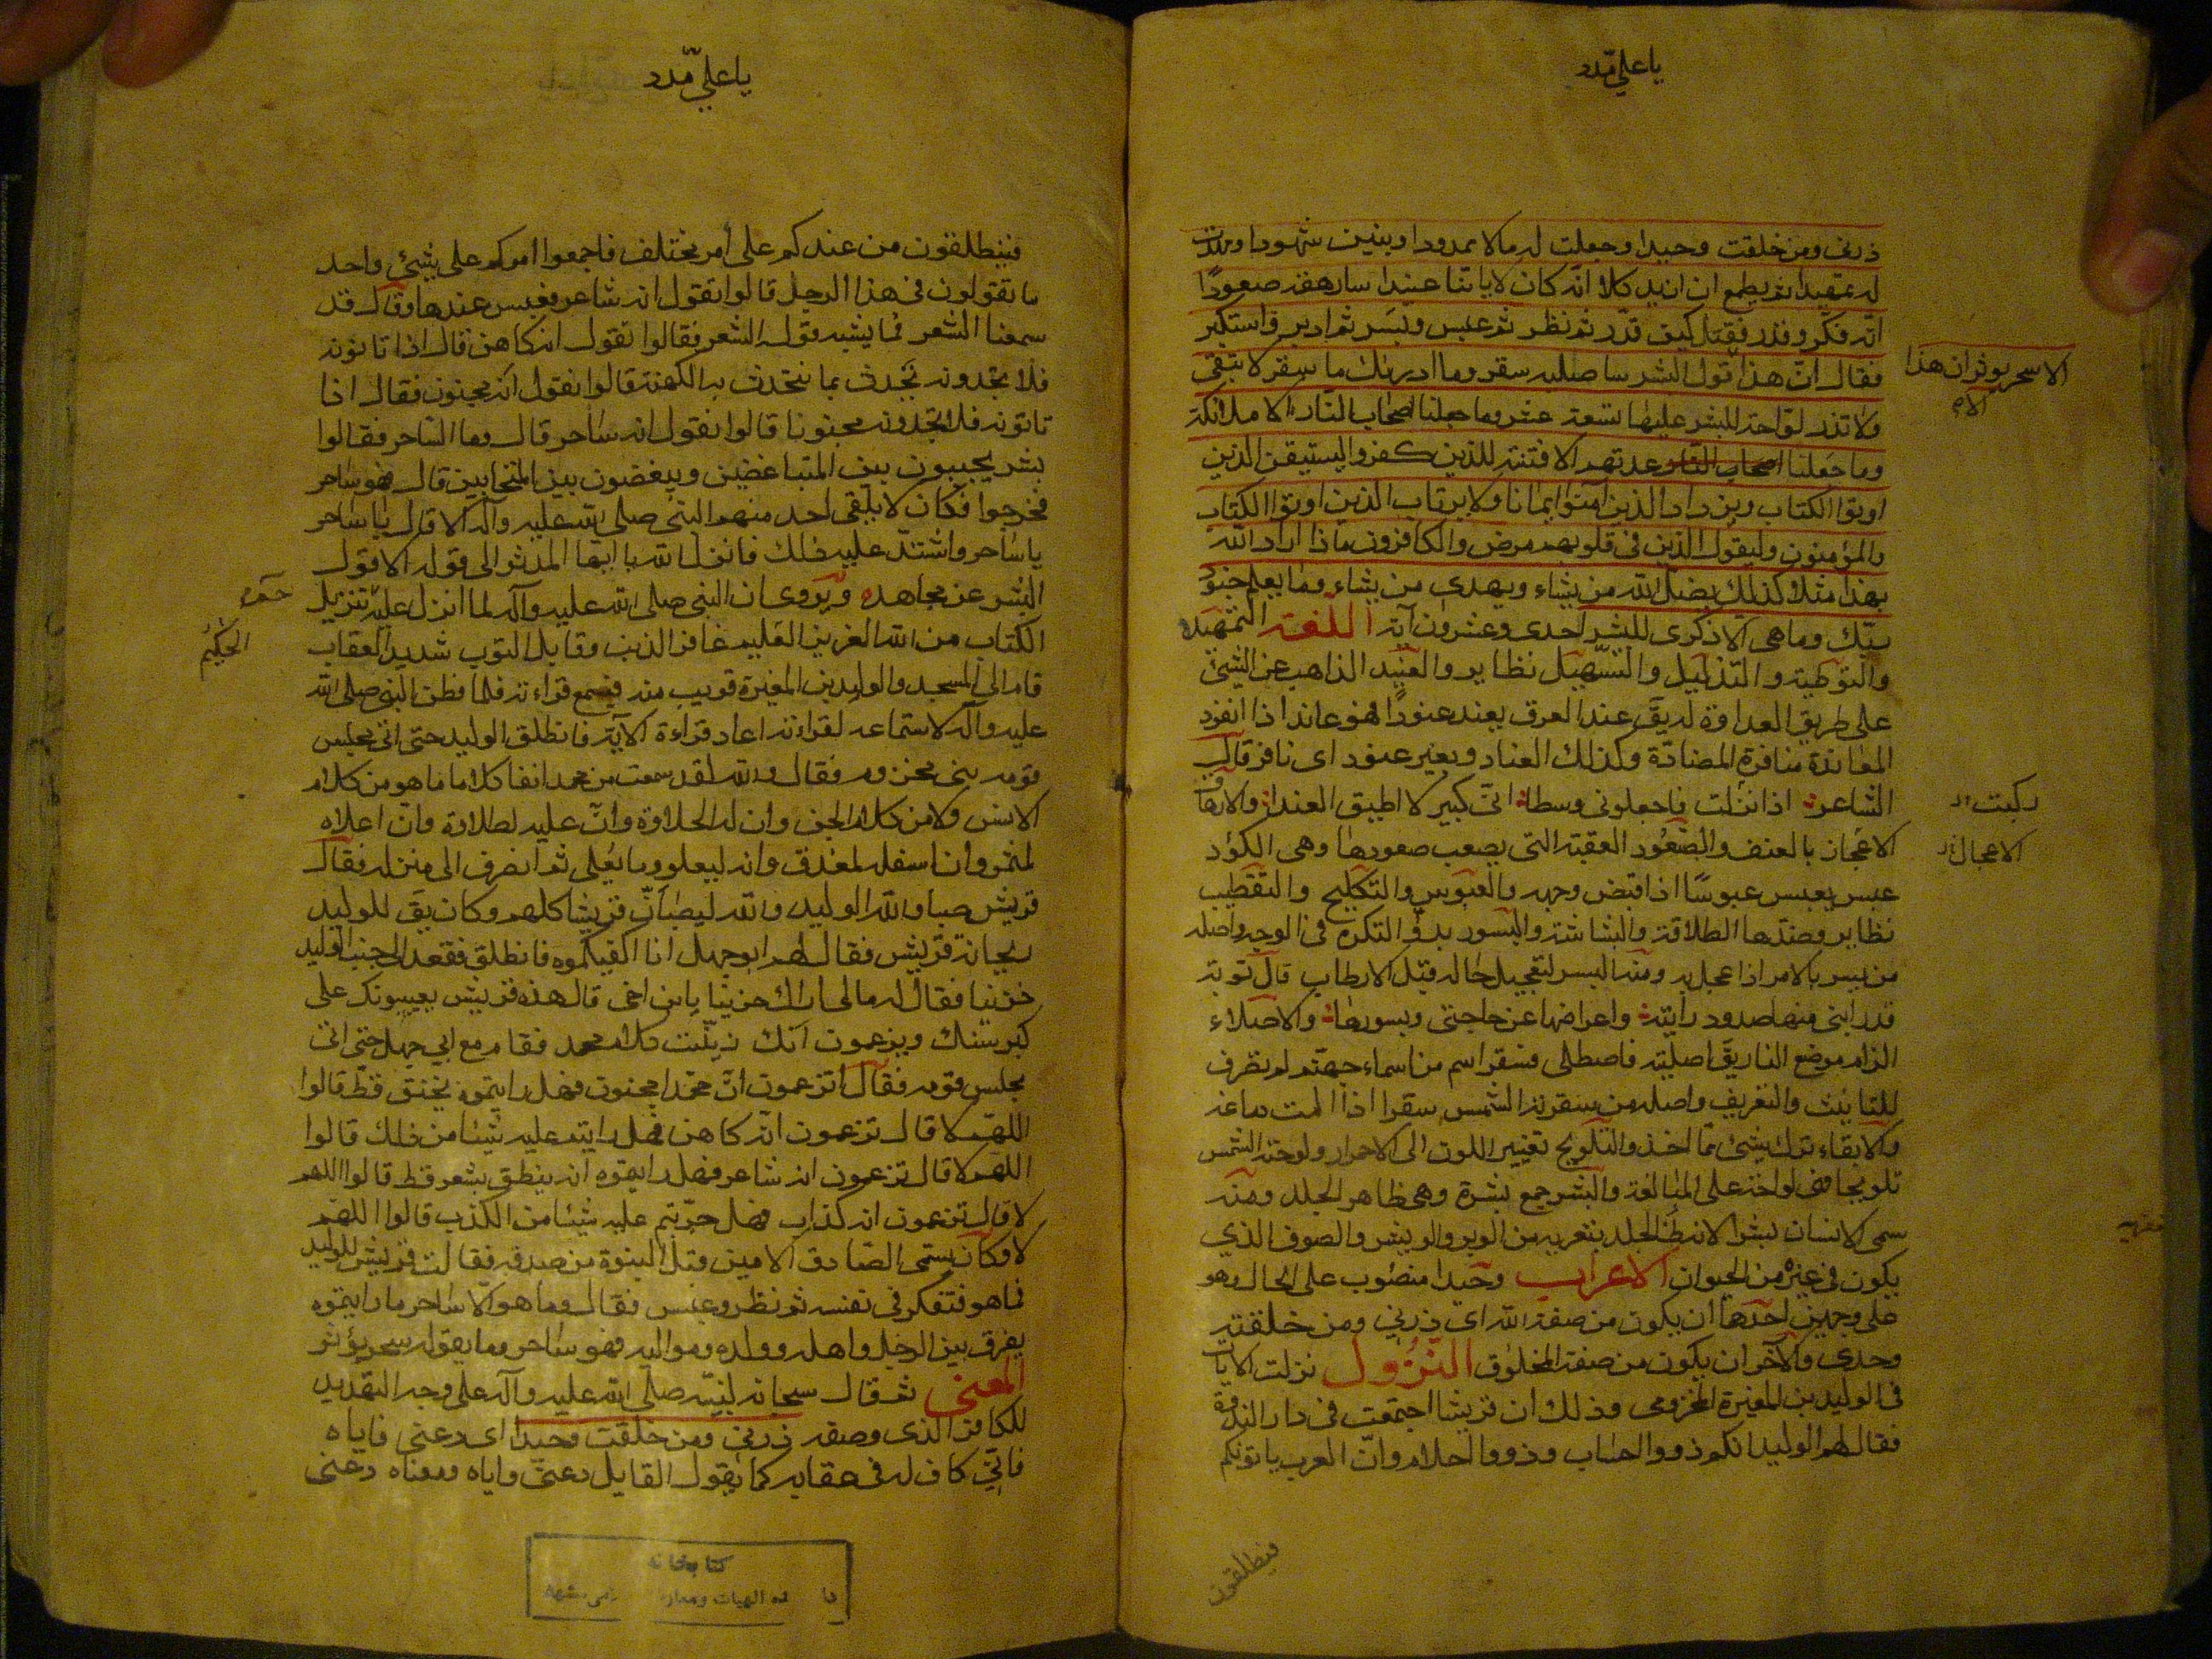 يا علي مدد
ذرني ومن خلقت وحيدا وجعلت له مالا ممدودا وبنين شهودا ومهدت
له تمهيدا ثم يطمع ان ازيد كلا انه كان لاياتنا عنيدا سارهقه صعودًا
انّه فكّر وقدر فقتل كيف قدّر ثم نظر ثم عبس وبَسَر ثم ادبر واستكبر
فقال انّ هذا قول البشر ساصليه سقر وما ادريٰك ما سقر لا تبقى
الا سحر يوثر ان هذا
الا
ولا تذر لوّاحة للبشر عليها تسعة عشر وما جعلنا اصحاب النّار الا ملائكة
وما جعلنا اصحاب النار عدتهم الا فتنة للذين كفروا ليستيقن الذين
اوتوا الكتاب ويزداد الذين آمنوا ايمانا ولا يرتاب الذين اوتوا الكتاب
والمؤمنون وليقول الذين في قلوبهم مرض والكافرون ماذا اراد الله
بهذا مثلا كذلك يضل الله من يشاء ويهدي من يشاء وما يعلم جنود
ربّك وما هى الّا ذكرى للبشر احدى وعشرون آية اللغة التمهيد
والتوطية والتذليل والتسهيل نظاير والعنيد الذاهب عن الشيئ
على طريق العداوة له يقّ عند العرق يعند عنودًا فهو عاند اذا انفرد
المعاندة منافرة المضادّة وكذلك العناد وبعير عنود اى نافر قال
الشاعر اذا نزلت فاجعلوني وسطا انّي كبير لا اطيق العندا والارهاق
ركبت
الاعجاز بالعنف والصّعُود العقبة التى يصعب صعودها وهى الكؤد
الاعجال
عبس يعبس عبوسًا اذا قبض وجهه والعبوس والتكليح والتقطيب
نظاير وضدّها الطلاقة والبشاشة والبسور بدؤ التكره فى الوجه واصله
من بسر بالامر اذا عجل به ومنه البسر لتعجيل حاله قبل الارطاب قال توبة
قد رابني منها صدود رايته واعراضها عن حاجتي وبسورها والاصلاء
الزام موضع النار يقّ اصليته فاصطلى وسقر اسم من اسماء جهنّم لم يصرف
للتانيث والتعريف واصله من سقرته الشمس سقرا اذا المت دماغه
والابقاء ترك شيئ مّما اخذ والتلويح تغيير اللون الى الاحمرار ولوحته الشمس
تلويحا فهى لواحة على المبالغة والبشر جمع بشرة وهى ظاهر الجلد ومنه
سمى الانسان بشرا لانه ظاهر الجلد بتعريه من الوبر والريش والصوف الذي
يكون في غيره من الحيوان الاعراب وحيدا منصوب على الحال وهو
على وجهين احدها ان يكون من صفة الله اى ذرني ومن خلقته
وحدي والآخر ان يكون من صفة المخلوق النزول نزلت الايات
فى الوليد بن المغيرة المخزومى وذلك ان قريشا اجتمعت فى دار الندوة
فقال لهم الوليد انكم ذووا احساب وذووا احلام وانّ العرب ياتونكم
فينطلقون
يا علي مدد
فينطلقون من عندكم على أمر مختلف فاجمعوا امركم على شيئ واحد
ما تقولون فى هذا الرجل قالوا نقول انه شاعر فعبس عندها وقال قد
سمعنا الشعر فما يشبه قوله الشعر فقالوا نقول انه كاهن قال اذا تاتونه
فلا تجدونه يحدث بما تحدث به الكهنة قالوا نقول انه مجنون فقال اذا
تاتونه فلا تجدونه مجنونا قالوا نقول انه ساحر قال وما الساحر فقالوا
بشر يحببون بين المتباغضين ويبغضون بين المتحابين قال فهو ساحر
فخرجوا فكان لا يلقى احد منهم النبى صلى الله عليه وآله الا قال يا ساحر
يا ساحر واشتدّ عليه ذلك فانزل الله يا ايها المدثر الى قوله الا قول
البشر عن مجاهد ويروى ان النبى صلى الله عليه وآله لما انزل عليه تنزيل
الكتاب من الله العزيز العليم غافر الذنب وقابل التوب شديد العقاب
الحكيم
قام الى المسجد والوليد بن المغيرة قريب منه فيسمع قراءته فلما فطن النبى صلى الله
عليه وآله لاستماعه لقراءته اعاد قراءة الآية فانطلق الوليد حتى اتى مجلس
قومه بنى مخزوم فقال والله لقد سمعت من محمد انفا كلاما ما هو من كلام
الانس ولا من كلام الجن وان له الحلاوة وانّ عليه لطلاوة وانّ اعلاه
لمثمر وان اسفله لمغدق وانه ليعلو وما يُعلى ثم انصرف الى منزله فقال
قريش صبا والله الوليد والله ليصبأنّ قريش كلهم وكان يقّ للوليد
ريحانة قريش فقال لهم ابوجهل انا اكفيكموه فانطلق فقعد الى جنب الوليد
حزينا فقال له مالى اراك حزينا يا بن اخى قال هذه قريش يعيبونك على
كبر سنك ويزعمون انّك زيّنت كلام محمد فقام مع ابي جهل حتى اتى
مجلس قومه فقال اتزعمون انّ محمّدا مجنون فهل رايتموه يخنق قطّ قالوا
اللهمّ لا قال تزعمون انّه كاهن فهل رايتم عليه شيئا من ذلك قالوا
اللهم لا قال تزعمون انه شاعر فهل رايتموه انه ينطق بشعر قط قالوا اللهم
لا قال تزعمون انه كذاب فهل جرّبتم عليه شيئا من الكذب قالوا اللهمّ
لا وكان يسمى الصّادق الامين قبل النبوة من صدقه فقالت قريش للوليد
فما هو فتفكر فى نفسه ثم نظر وعبس فقال وما هو الّا ساحر ما رايتموه
يفرق بين الرجل واهله وولده ومواليه فهو ساحر وما يقوله سحر يؤثر
المعنى ثم قال سبحانه لنبيّه صلى الله عليه وآله على وجه التهديد
للكافر الذى وصفه ذرني ومن خلقت وحيدا اى دعني واياه
فانّي كاف له فى عقابه كما يقول القايل دعني واياه ومعناه دعنى
كتابخانه
ده الهيات ومعار